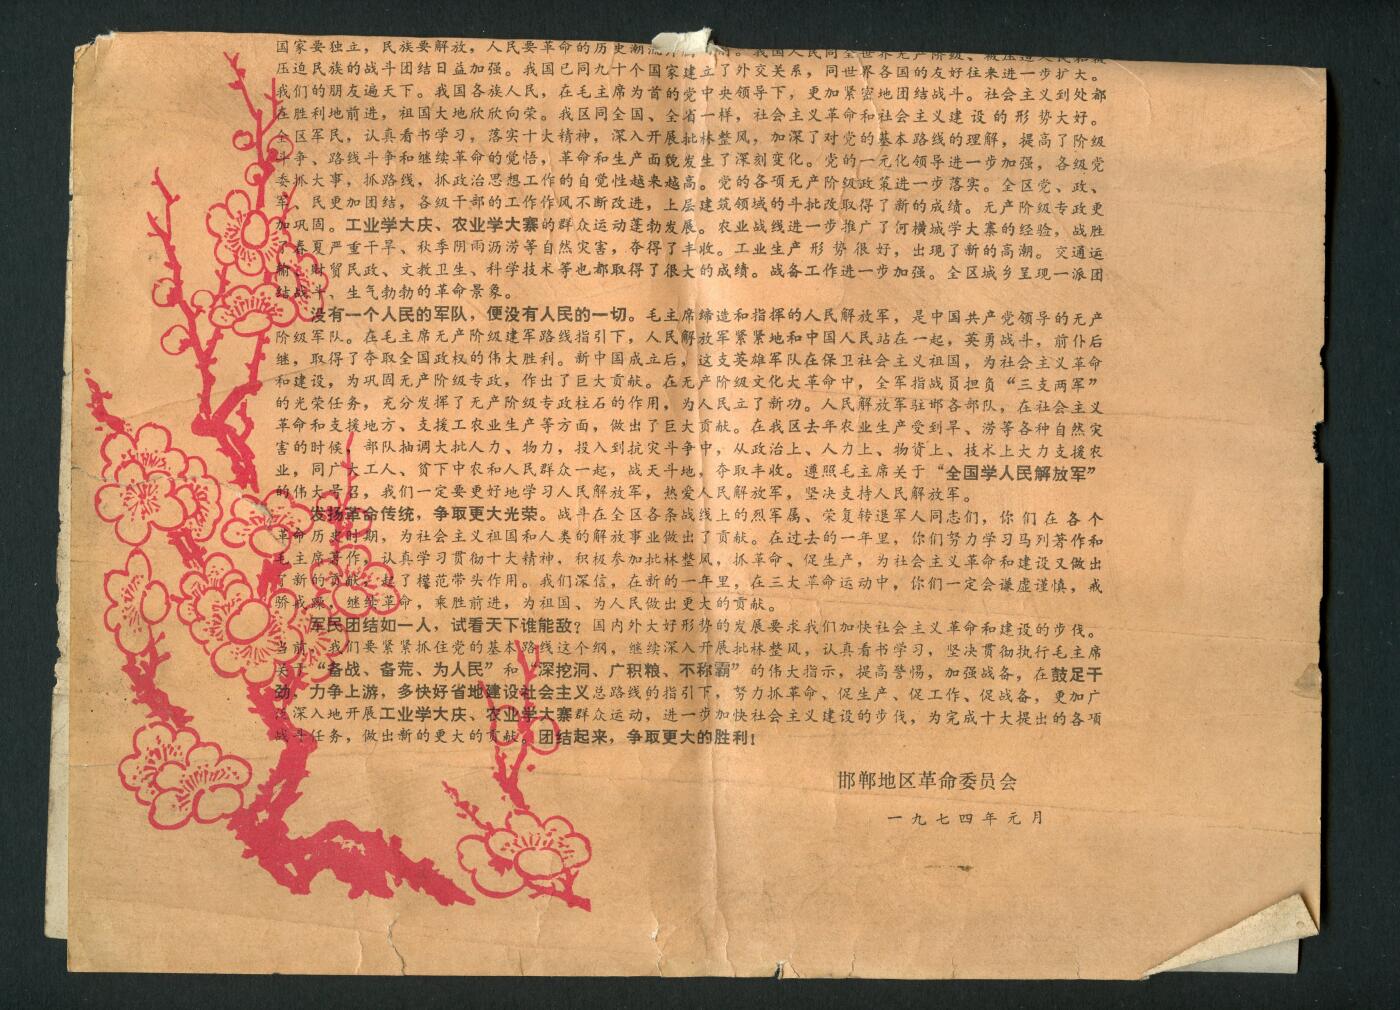 国家要独立，民族要解放，人民要革命的历史潮流
压迫民族的战斗团结日益加强。我国已同九十个国家建立了外交关系，同世界各国的友好往来进一步扩大。
我们的朋友遍天下。我国各族人民，在毛主席为首的党中央领导下，更加紧密地团结战斗。社会主义到处都
在胜利地前进，祖国大地欣欣向荣。我区同全国、全省一样，社会主义革命和社会主义建设的形势大好。
全区军民，认真看书学习，落实十大精神，深入开展批林整风，加深了对党的基本路线的理解，提高了阶级
斗争、路线斗争和继续革命的觉悟，革命和生产面貌发生了深刻变化。党的一元化领导进一步加强，各级党
委抓大事，抓路线，抓政治思想工作的自觉性越来越高。党的各项无产阶级政策进一步落实。全区党、政、
军、民更加团结，各级干部的工作作风不断改进，上层建筑领域的斗批改取得了新的成绩。无产阶级专政更
加巩固。工业学大庆、农业学大寨的群众运动蓬勃发展。农业战线进一步推广了何横城学大寨的经验，战胜
了春夏严重干旱、秋季阴雨沥涝等自然灾害，夺得了丰收。工业生产形势很好，出现了新的高潮。交通运
输、财贸民政、文教卫生、科学技术等也都取得了很大的成绩。战备工作进一步加强。全区城乡呈现一派团
结战斗、生气勃勃的革命景象。
没有一个人民的军队，便没有人民的一切。毛主席缔造和指挥的人民解放军，是中国共产党领导的无产
阶级军队。在毛主席无产阶级建军路线指引下，人民解放军紧紧地和中国人民站在一起，英勇战斗，前仆后
继，取得了夺取全国政权的伟大胜利。新中国成立后，这支英雄军队在保卫社会主义祖国，为社会主义革命
和建设，为巩固无产阶级专政，作出了巨大贡献。在无产阶级文化大革命中，全军指战员担负“三支两军”
的光荣任务，充分发挥了无产阶级专政柱石的作用，为人民立了新功。人民解放军驻邯各部队，在社会主义
革命和支援地方、支援工农业生产等方面，做出了巨大贡献。在我区去年农业生产受到旱、涝等各种自然灾
害的时候，部队抽调大批人力、物力，投入到抗灾斗争中，从政治上、人力上、物资上、技术上大力支援农
业，同广大工人、贫下中农和人民群众一起，战天斗地，夺取丰收。遵照毛主席关于“全国学人民解放军”
的伟大号召，我们一定要更好地学习人民解放军，热爱人民解放军，坚决支持人民解放军。
发扬革命传统，争取更大光荣。战斗在全区各条战线上的烈军属、荣复转退军人同志们，你们在各个
革命历史时期，为社会主义祖国和人类的解放事业做出了贡献。在过去的一年里，你们努力学习马列著作和
毛主席著作，认真学习贯彻十大精神，积极参加批林整风，抓革命、促生产，为社会主义革命和建设又做出
了新的贡献，起了模范带头作用。我们深信，在新的一年里，在三大革命运动中，你们一定会谦虚谨慎，戒
骄戒躁，继续革命，乘胜前进，为祖国、为人民做出更大的贡献。
军民团结如一人，试看天下谁能敌？国内外大好形势的发展要求我们加快社会主义革命和建设的步伐。
当前，我们要紧紧抓住党的基本路线这个纲，继续深入开展批林整风，认真看书学习，坚决贯彻执行毛主席
关于“备战、备荒、为人民”和“深挖洞、广积粮、不称霸”的伟大指示，提高警惕，加强战备，在鼓足干
劲，力争上游，多快好省地建设社会主义总路线的指引下，努力抓革命、促生产、促工作、促战备，更加广
泛深入地开展工业学大庆、农业学大寨群众运动，进一步加快社会主义建设的步伐，为完成十大提出的各项
战斗任务，做出新的更大的贡献。团结起来，争取更大的胜利！
邯郸地区革命委员会
一九七四年元月